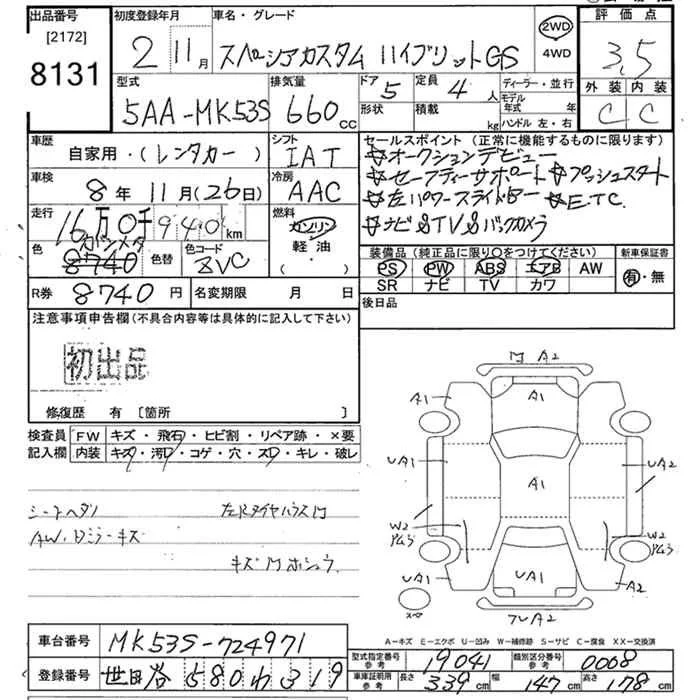 出品番号 [2172] 8131
初度登録年月 2 11月
車名・グレード スペーシアカスタム ハイブリットGS
2WD 4WD
評価点 3.5
外装 内装
C C
型式 5AA-MK53S
排気量 660cc
ドア 5 定員 4人
形状 積載 kg
ディーラー・並行
モデル年式 年
ハンドル 左・右
車歴 自家用・(レンタカー)
シフト IAT
車検 8年 11月(26日)
冷房 AAC
走行 16万0千940km
燃料 ガソリン 軽油 ( ・ )
色 ガンメタ
8740
色替
色コード ZVC
R券 8740円
名変期限 月 日
セールスポイント(正常に機能するものに限ります)
オークションデビュー
セーフティーサポート プッシュスタート
左パワースライドドアー E.T.C.
ナビ&TV&バックカメラ
装備品(純正品に限り○をつけてください)
PS PW ABS エアB AW
SR ナビ TV カワ
新車保証書 有・無
後日品
注意事項申告欄(不具合内容等は具体的に記入して下さい)
初出品
修復歴 有 [箇所 ]
検査員記入欄
FW キズ・飛石・ヒビ割・リペア跡・×要
内装 キズ・汚レ・コゲ・穴・スレ・キレ・破レ
シートヘタリ
左Rタイヤハウス
AW・ドミラーキズ
A2
A1
A1
A1
UA1
UA2
A1
W2
W2
UA1
UA1
A2
A2
スペ
A-キズ E-エクボ U-凹み W-補修跡 S-サビ C-腐食 XX-交換済
車台番号 MK53S-724971
登録番号 世田谷 580 わ 319
型式指定番号 参考 19041
類別区分番号 参考 0008
車庫証明用 参考 長さ 339cm 幅 147cm 高さ 178cm